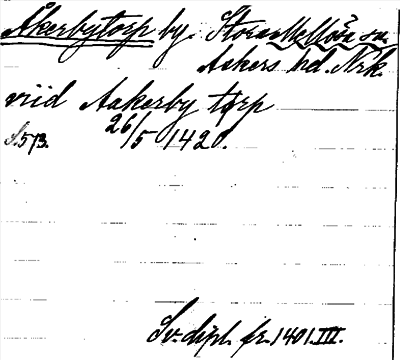 Åkerbytorp by. Stora Mellösa sn.
Askers hd. Nrk.
viid Aakerby torp
S. 573. 26/5 1420.
Sv. dipl. fr. 1401. III.